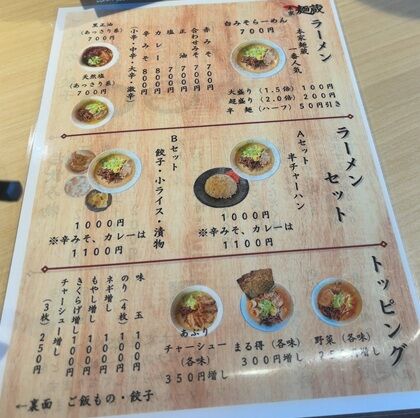 麺蔵
ラーメン
本家麺蔵
一番人気
白みそらーめん
700円
大盛り(1.5倍)100円
超盛り(2.0倍)200円
半麺(ハーフ)50円引き
赤みそ 700円
合わせみそ 700円
正油 700円
塩 700円
カレー 800円
辛みそ 800円
(小辛・中辛・大辛・激辛)
黒正油
(あっさり系)
700円
天然塩
(あっさり系)
700円
ラーメン
セット
Aセット
半チャーハン
1000円
※辛みそ、カレーは
1100円
Bセット
餃子・小ライス・漬物
1000円
※辛みそ、カレーは
1100円
トッピング
野菜(各味)
円増し
まる得(各味)
300円増し
あぶり
チャーシュー
(各味)
350円増し
味玉 100円
のり(4枚) 100円
ネギ増し 100円
もやし増し 100円
きくらげ増し 100円
チャーシュー増し
(3枚) 250円
←裏面 ご飯もの・餃子